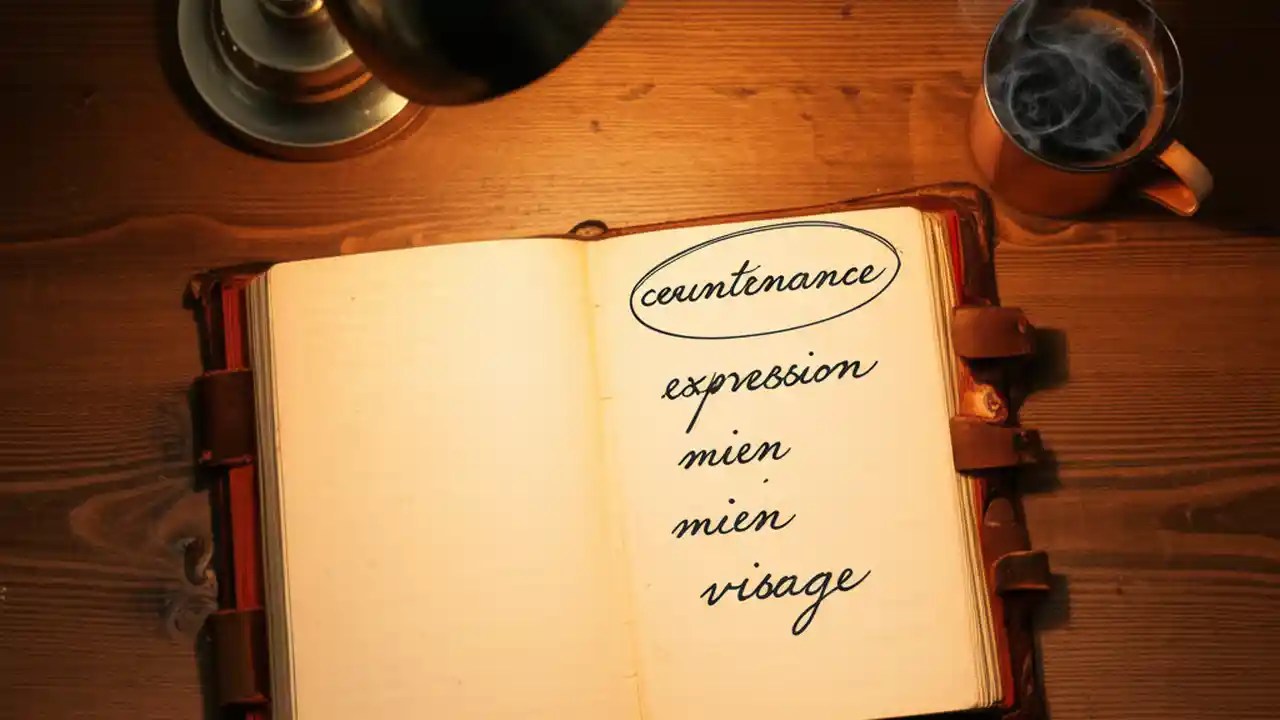 ceuntenance
expression
mien
mien
visage